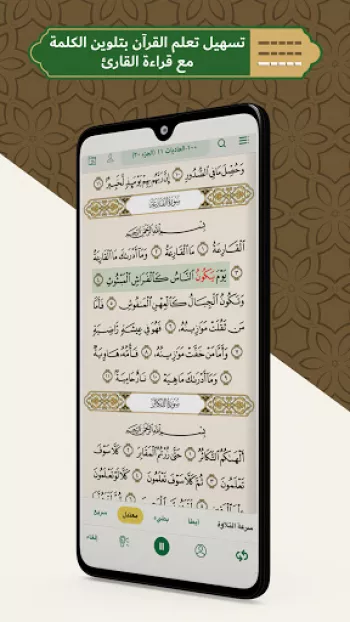 تسهيل تعلم القرآن بتلوين الكلمة
مع قراءة القارئ
١٠٠-العاديات ١١ (الجزء ٣٠)
وَحُصِّلَ مَا فِي ٱلصُّدُورِ ١٠ إِنَّ رَبَّهُم بِهِمۡ يَوۡمَئِذٖ لَّخَبِيرُۢ ١١
سُورَةُ القَارِعَةِ
بِسۡمِ ٱللَّهِ ٱلرَّحۡمَٰنِ ٱلرَّحِيمِ
ٱلۡقَارِعَةُ ١ مَا ٱلۡقَارِعَةُ ٢ وَمَآ أَدۡرَىٰكَ مَا ٱلۡقَارِعَةُ
٣ يَوۡمَ يَكُونُ ٱلنَّاسُ كَٱلۡفَرَاشِ ٱلۡمَبۡثُوثِ ٤
وَتَكُونُ ٱلۡجِبَالُ كَٱلۡعِهۡنِ ٱلۡمَنفُوشِ ٥ فَأَمَّا
مَن ثَقُلَتۡ مَوَٰزِينُهُۥ ٦ فَهُوَ فِي عِيشَةٖ رَّاضِيَةٖ
٧ وَأَمَّا مَنۡ خَفَّتۡ مَوَٰزِينُهُۥ ٨ فَأُمُّهُۥ هَاوِيَةٞ
٩ وَمَآ أَدۡرَىٰكَ مَا هِيَهۡ ١٠ نَارٌ حَامِيَةُۢ ١١
سُورَةُ التَّكَاثُرِ
بِسۡمِ ٱللَّهِ ٱلرَّحۡمَٰنِ ٱلرَّحِيمِ
أَلۡهَىٰكُمُ ٱلتَّكَاثُرُ ١ حَتَّىٰ زُرۡتُمُ ٱلۡمَقَابِرَ ٢ كَلَّا سَوۡفَ
تَعۡلَمُونَ ٣ ثُمَّ كَلَّا سَوۡفَ تَعۡلَمُونَ ٤ كَلَّا لَوۡ تَعۡلَمُونَ
سرعة التلاوة أبطأ بطيء معتدل سريع
إخفاء